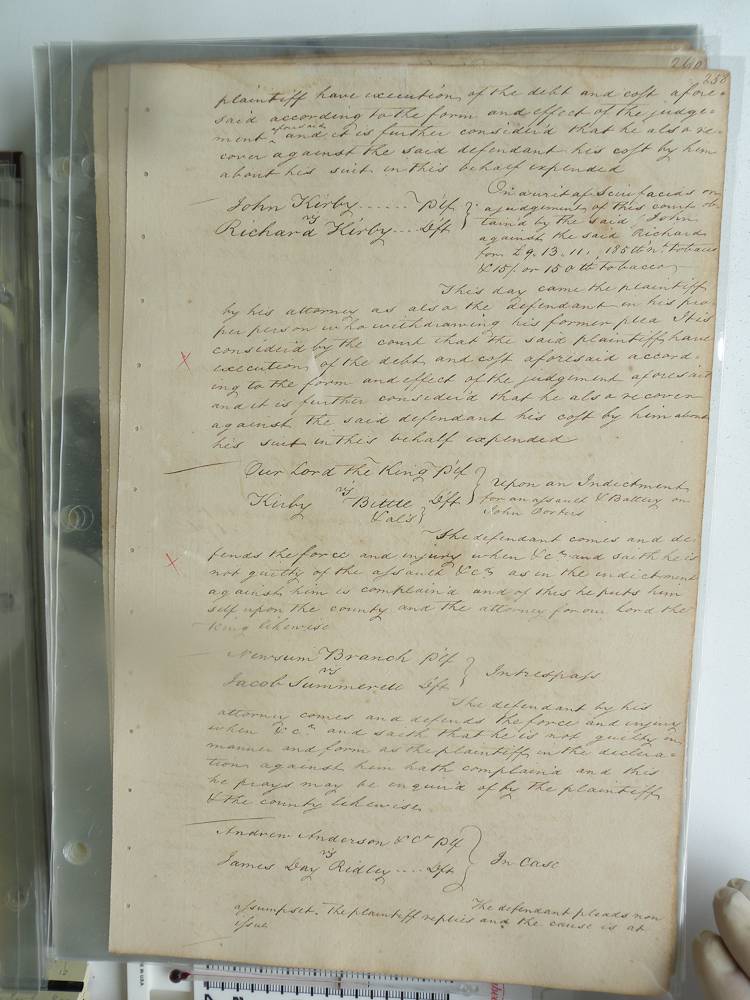 240
258
plaintiff have execution of the debt and cost afore-
said according to the form and effect of the judge-
ment aforesaid and it is further consider'd that he also re-
cover against the said defendant his cost by him
about his suit in this behalf expended
John Kirby ...... Plf
vs
Richard Kirby .... Dft
On a writ of Scire facias on
a judgement of this court ob-
tain'd by the said John
against the said Richard
for £9. 13. 11., 185 tt nt tobacco
& 15/. or 150 tt tobacco
This day came the plaintiff
by his attorney as also the defendant in his pro-
per person who withdrawing his former plea It is
consider'd by the court that the said plaintiff have
execution of the debt and cost aforesaid accord-
ing to the form and effect of the judgement aforesaid
and it is further consider'd that he also recover
against the said defendant his cost by him about
his suit in this behalf expended
Our Lord the King Plf
vs
Kirby Bittle Dft
& als
Upon an Indictment
for an assault & Battery on
John Porters
The defendant comes and de-
fends the force and injury when &c. and saith he is
not guilty of the assault &c. as in the indictment
against him is complain'd and of this he puts him
self upon the county and the attorney for our Lord the
King likewise
Newsum Branch Plf
vs
Jacob Summerell Dft
In trespass
The defendant by his
attorney comes and defends the force and injury
when &c. and saith that he is not guilty in
manner and form as the plaintiff in the declara-
tion against him hath complain'd and this
he prays may be enquir'd of by the plaintiff
& the county likewise
Andrew Anderson & Co Plf
vs
James Day Ridley .... Dft
In Case
The defendant pleads non
assumpset. The plaintiff replies and the cause is at
issue